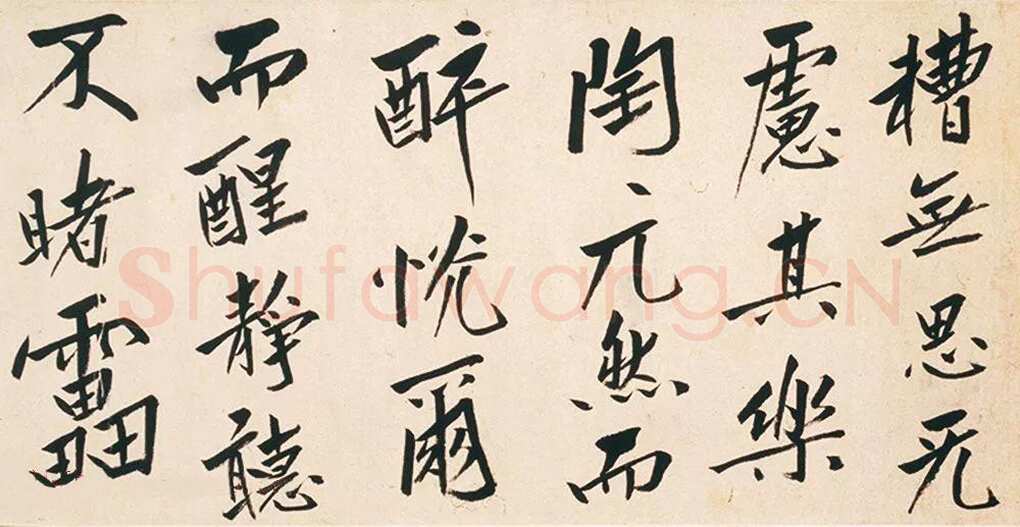 糟無思无
慮其樂
陶〻兀然而
醉恍爾
而醒靜聽
不睹靁
Shufawang.CN